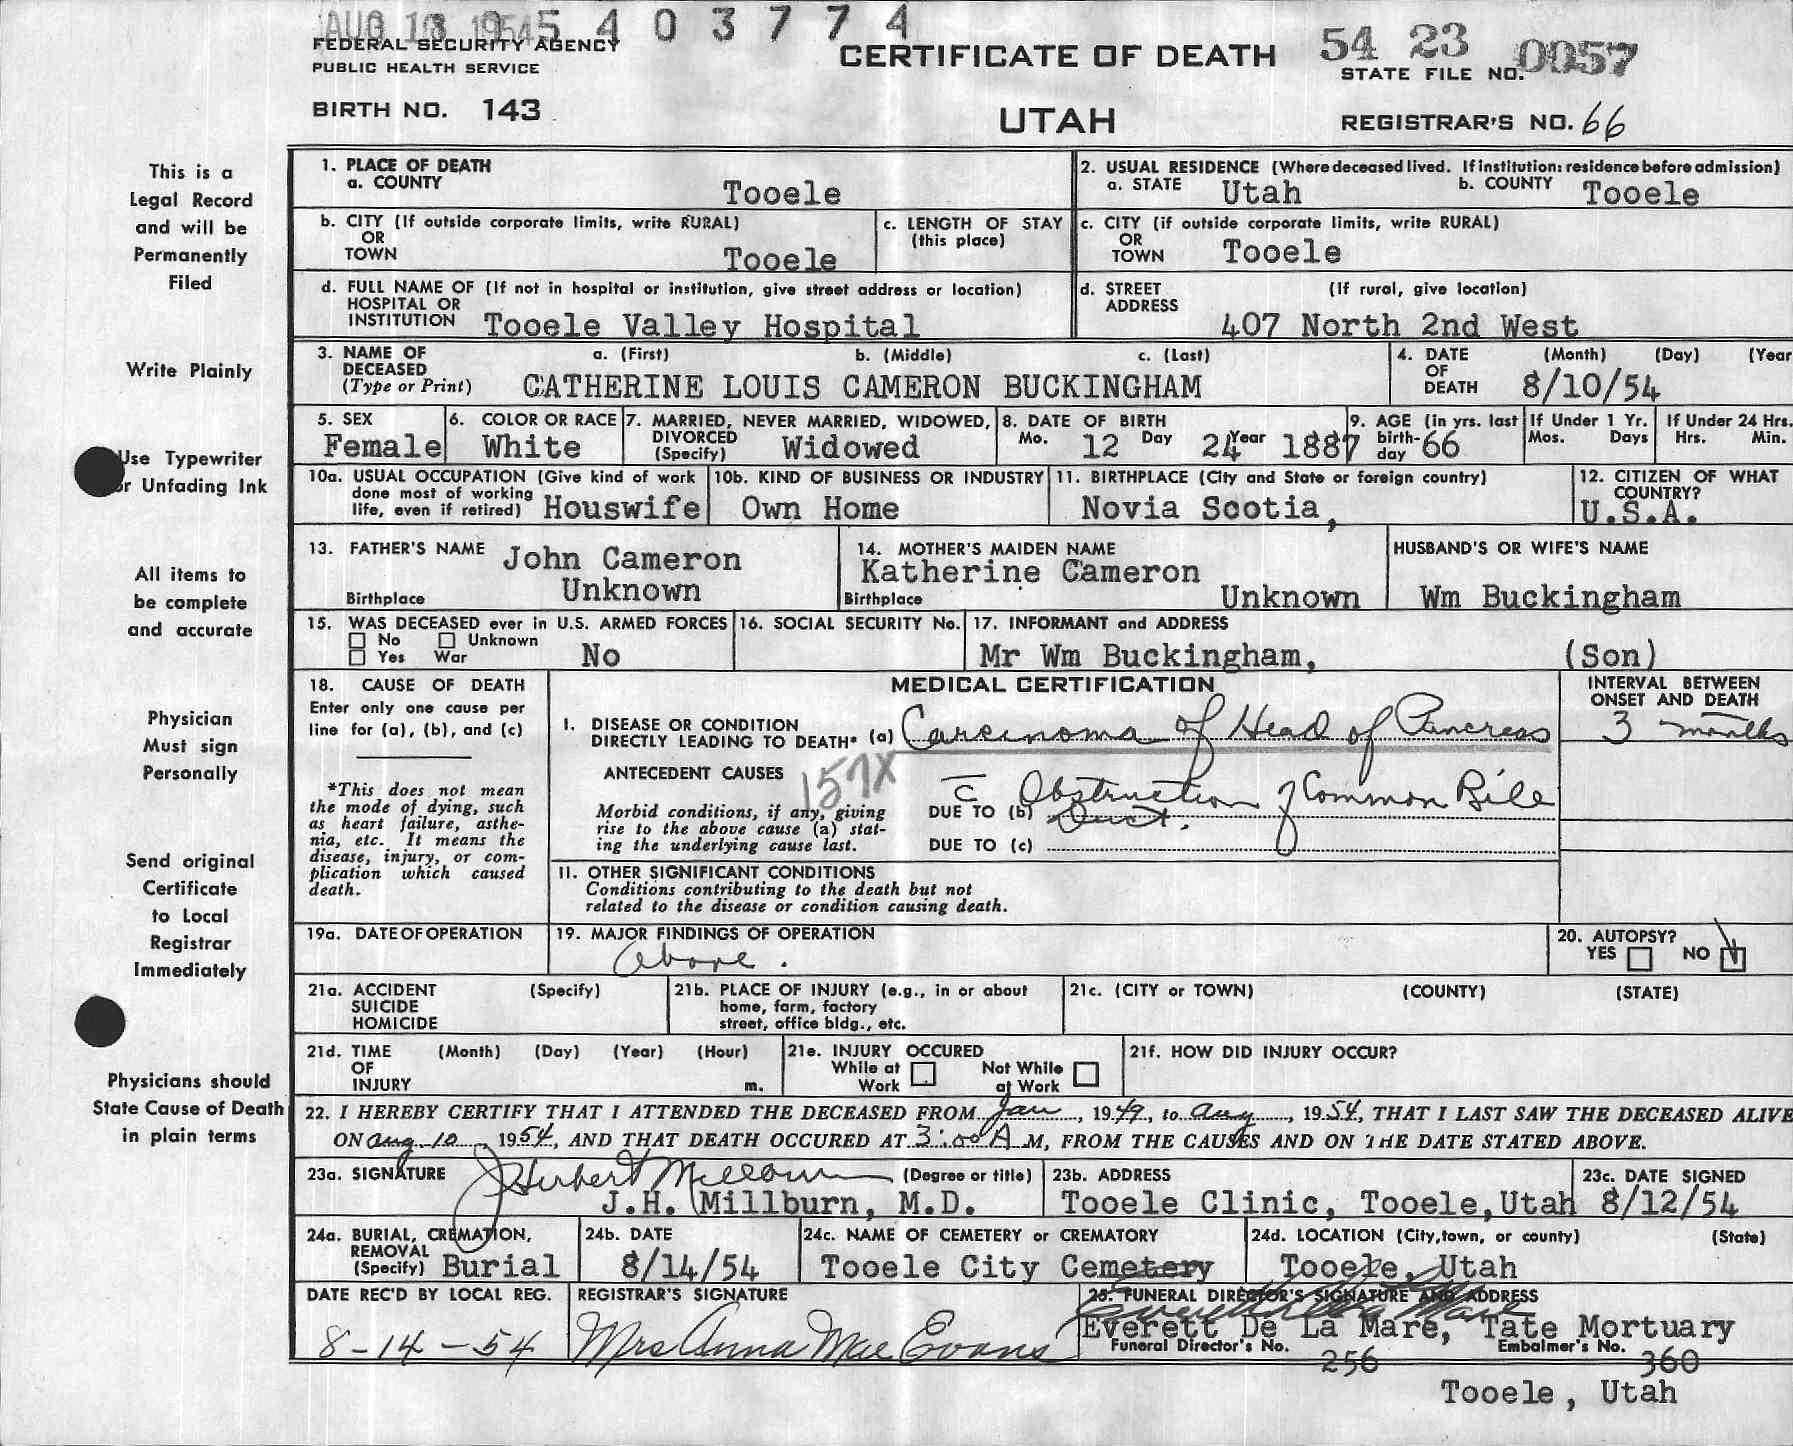 AUG 13 1954 5 4 0 3 7 7 4
FEDERAL SECURITY AGENCY
PUBLIC HEALTH SERVICE
CERTIFICATE OF DEATH
54 23 0057
STATE FILE NO.
BIRTH NO. 143
UTAH
REGISTRAR'S NO. 66
This is a
Legal Record
and will be
Permanently
Filed
Write Plainly
Use Typewriter
or Unfading Ink
All items to
be complete
and accurate
Physician
Must sign
Personally
Send original
Certificate
to Local
Registrar
Immediately
Physicians should
State Cause of Death
in plain terms
1. PLACE OF DEATH
a. COUNTY Tooele
2. USUAL RESIDENCE (Where deceased lived. If institution: residence before admission)
a. STATE Utah b. COUNTY Tooele
b. CITY (If outside corporate limits, write RURAL)
OR
TOWN Tooele
c. LENGTH OF STAY
(this place)
c. CITY (if outside corporate limits, write RURAL)
OR
TOWN Tooele
d. FULL NAME OF (If not in hospital or institution, give street address or location)
HOSPITAL OR
INSTITUTION Tooele Valley Hospital
d. STREET (If rural, give location)
ADDRESS
407 North 2nd West
3. NAME OF a. (First) b. (Middle) c. (Last)
DECEASED
(Type or Print) CATHERINE LOUIS CAMERON BUCKINGHAM
4. DATE (Month) (Day) (Year
OF
DEATH 8/10/54
5. SEX
Female
6. COLOR OR RACE
White
7. MARRIED, NEVER MARRIED, WIDOWED,
DIVORCED
(Specify) Widowed
8. DATE OF BIRTH
Mo. 12 Day 24 Year 1887
9. AGE (in yrs. last
birth-
day 66
If Under 1 Yr.
Mos. Days
If Under 24 Hrs.
Hrs. Min.
10a. USUAL OCCUPATION (Give kind of work
done most of working
life, even if retired) Houswife
10b. KIND OF BUSINESS OR INDUSTRY
Own Home
11. BIRTHPLACE (City and State or foreign country)
Novia Scotia,
12. CITIZEN OF WHAT
COUNTRY?
U.S.A.
13. FATHER'S NAME John Cameron
Birthplace Unknown
14. MOTHER'S MAIDEN NAME
Katherine Cameron
Birthplace Unknown
HUSBAND'S OR WIFE'S NAME
Wm Buckingham
15. WAS DECEASED ever in U.S. ARMED FORCES
No Unknown
Yes War No
16. SOCIAL SECURITY No.
17. INFORMANT and ADDRESS
Mr Wm Buckingham, (Son)
18. CAUSE OF DEATH
Enter only one cause per
line for (a), (b), and (c)
*This does not mean
the mode of dying, such
as heart failure, asthe-
nia, etc. It means the
disease, injury, or com-
plication which caused
death.
MEDICAL CERTIFICATION
INTERVAL BETWEEN
ONSET AND DEATH
I. DISEASE OR CONDITION
DIRECTLY LEADING TO DEATH* (a) Carcinoma of Head of Pancreas
3 months
ANTECEDENT CAUSES 157X
Morbid conditions, if any, giving
rise to the above cause (a) stat-
ing the underlying cause last.
DUE TO (b) c̄ Obstruction of Common Bile
Duct.
DUE TO (c)
11. OTHER SIGNIFICANT CONDITIONS
Conditions contributing to the death but not
related to the disease or condition causing death.
19a. DATE OF OPERATION
19. MAJOR FINDINGS OF OPERATION
Above.
20. AUTOPSY?
YES NO
21a. ACCIDENT (Specify)
SUICIDE
HOMICIDE
21b. PLACE OF INJURY (e.g., in or about
home, farm, factory
street, office bldg., etc.
21c. (CITY or TOWN) (COUNTY) (STATE)
21d. TIME (Month) (Day) (Year) (Hour)
OF
INJURY m.
21e. INJURY OCCURED
While at Work
Not While at Work
21f. HOW DID INJURY OCCUR?
22. I HEREBY CERTIFY THAT I ATTENDED THE DECEASED FROM Jan, 1949, to Aug, 1954, THAT I LAST SAW THE DECEASED ALIVE
ON Aug. 10, 1954, AND THAT DEATH OCCURED AT 3:00 A M, FROM THE CAUSES AND ON THE DATE STATED ABOVE.
23a. SIGNATURE J Herbert Millburn (Degree or title)
J.H. Millburn, M.D.
23b. ADDRESS
Tooele Clinic, Tooele,Utah
23c. DATE SIGNED
8/12/54
24a. BURIAL, CREMATION,
REMOVAL
(Specify) Burial
24b. DATE
8/14/54
24c. NAME OF CEMETERY or CREMATORY
Tooele City Cemetery
24d. LOCATION (City,town, or county) (State)
Tooele, Utah
DATE REC'D BY LOCAL REG.
8-14-54
REGISTRAR'S SIGNATURE
Mrs Anna Mae Evans
25. FUNERAL DIRECTOR'S SIGNATURE AND ADDRESS
Everett De La Mare
Everett De La Mare, Tate Mortuary
Funeral Director's No. 256 Embalmer's No. 360
Tooele, Utah